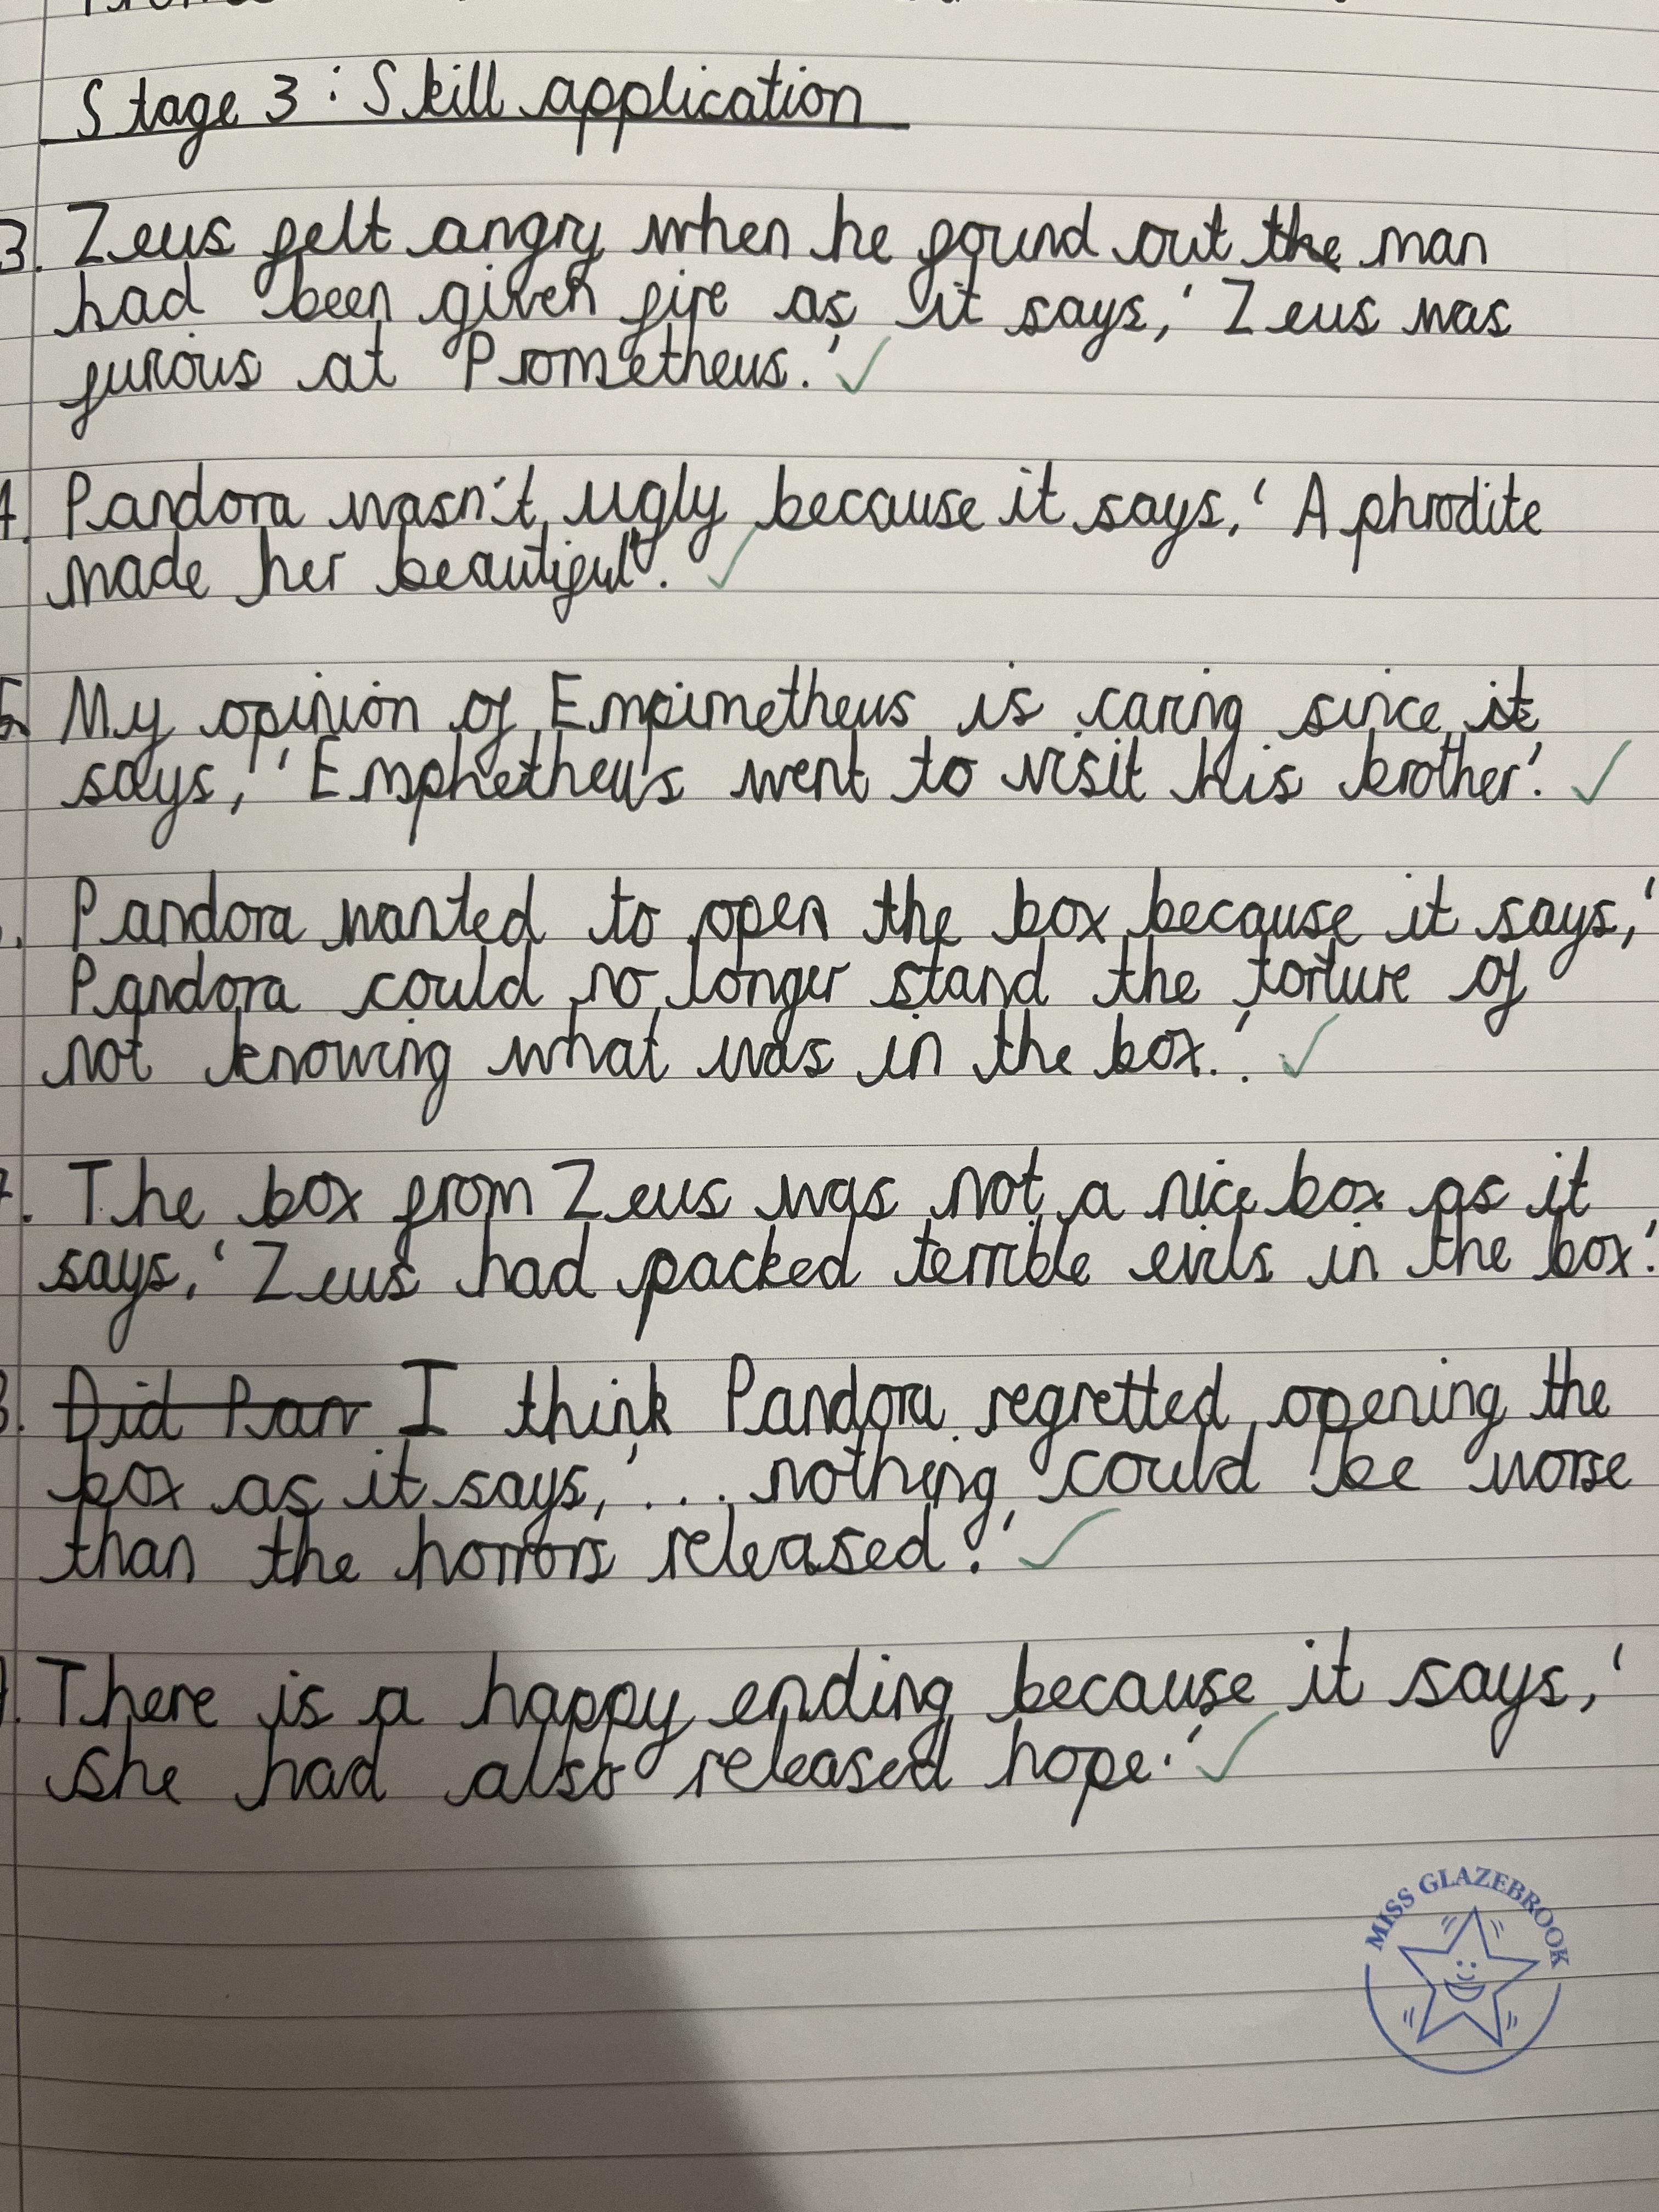 Stage 3: Skill application
3. Zeus felt angry when he found out the man
had been given fire as it says, 'Zeus was
furious at Prometheus.'
4. Pandora wasn't ugly because it says, 'Aphrodite
made her beautiful'.
5. My opinion of Empimetheus is caring since it
says, 'Emphetheus went to visit his brother'.
. Pandora wanted to open the box because it says, '
Pandora could no longer stand the torture of
not knowing what was in the box.'.
7. The box from Zeus was not a nice box as it
says, 'Zeus had packed terrible evils in the box'.
8. Did Pan I think Pandora regretted opening the
box as it says, '... nothing could be worse
than the horrors released.'
. There is a happy ending because it says, '
she had also released hope.'
MISS GLAZEBROOK